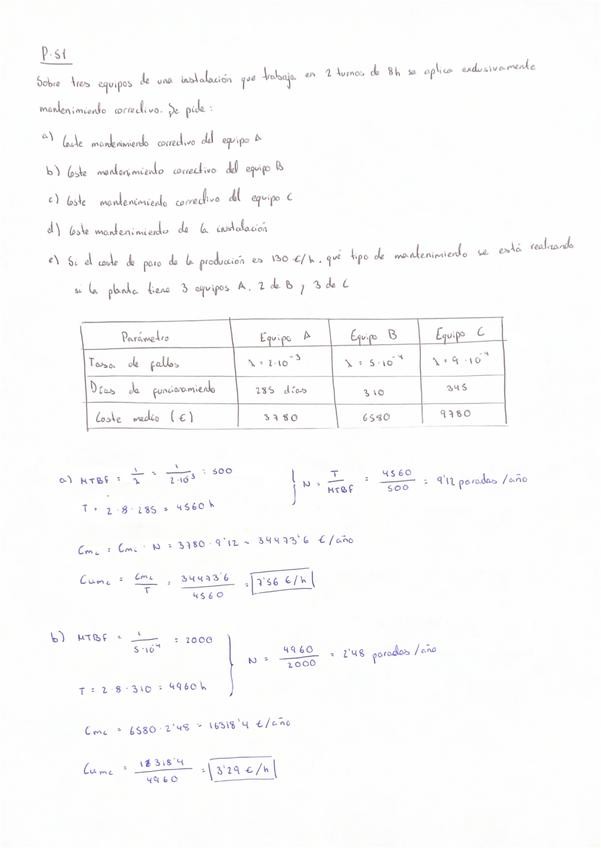 P.51
Sobre tres equipos de una instalación que trabaja en 2 turnos de 8h se aplica exclusivamente
mantenimiento correctivo. Se pide:
a) Coste mantenimiento correctivo del equipo A
b) Coste mantenimiento correctivo del equipo B
c) Coste mantenimiento correctivo del equipo C
d) Coste mantenimiento de la instalación
e) Si el coste de paro de la producción es 130 €/h. qué tipo de mantenimiento se está realizando
si la planta tiene 3 equipos A, 2 de B y 3 de C
Parámetro Equipo A Equipo B Equipo C
Tasa de fallos λ = 2·10⁻³ λ = 5·10⁻⁴ λ = 9·10⁻⁴
Días de funcionamiento 285 días 310 345
Coste medio (€) 3780 6580 9780
a) MTBF = 1/λ = 1/2·10⁻³ = 500 } N = T/MTBF = 4560/500 = 9'12 paradas/año
T = 2·8·285 = 4560 h
Cmc = Cmc · N = 3780 · 9'12 = 34473'6 €/año
Cumc = Cmc/T = 34473'6/4560 = 7'56 €/h
b) MTBF = 1/5·10⁻⁴ = 2000 } N = 4960/2000 = 2'48 paradas/año
T = 2·8·310 = 4960 h
Cmc = 6580 · 2'48 = 16318'4 €/año
Cumc = 16318'4/4960 = 3'29 €/h